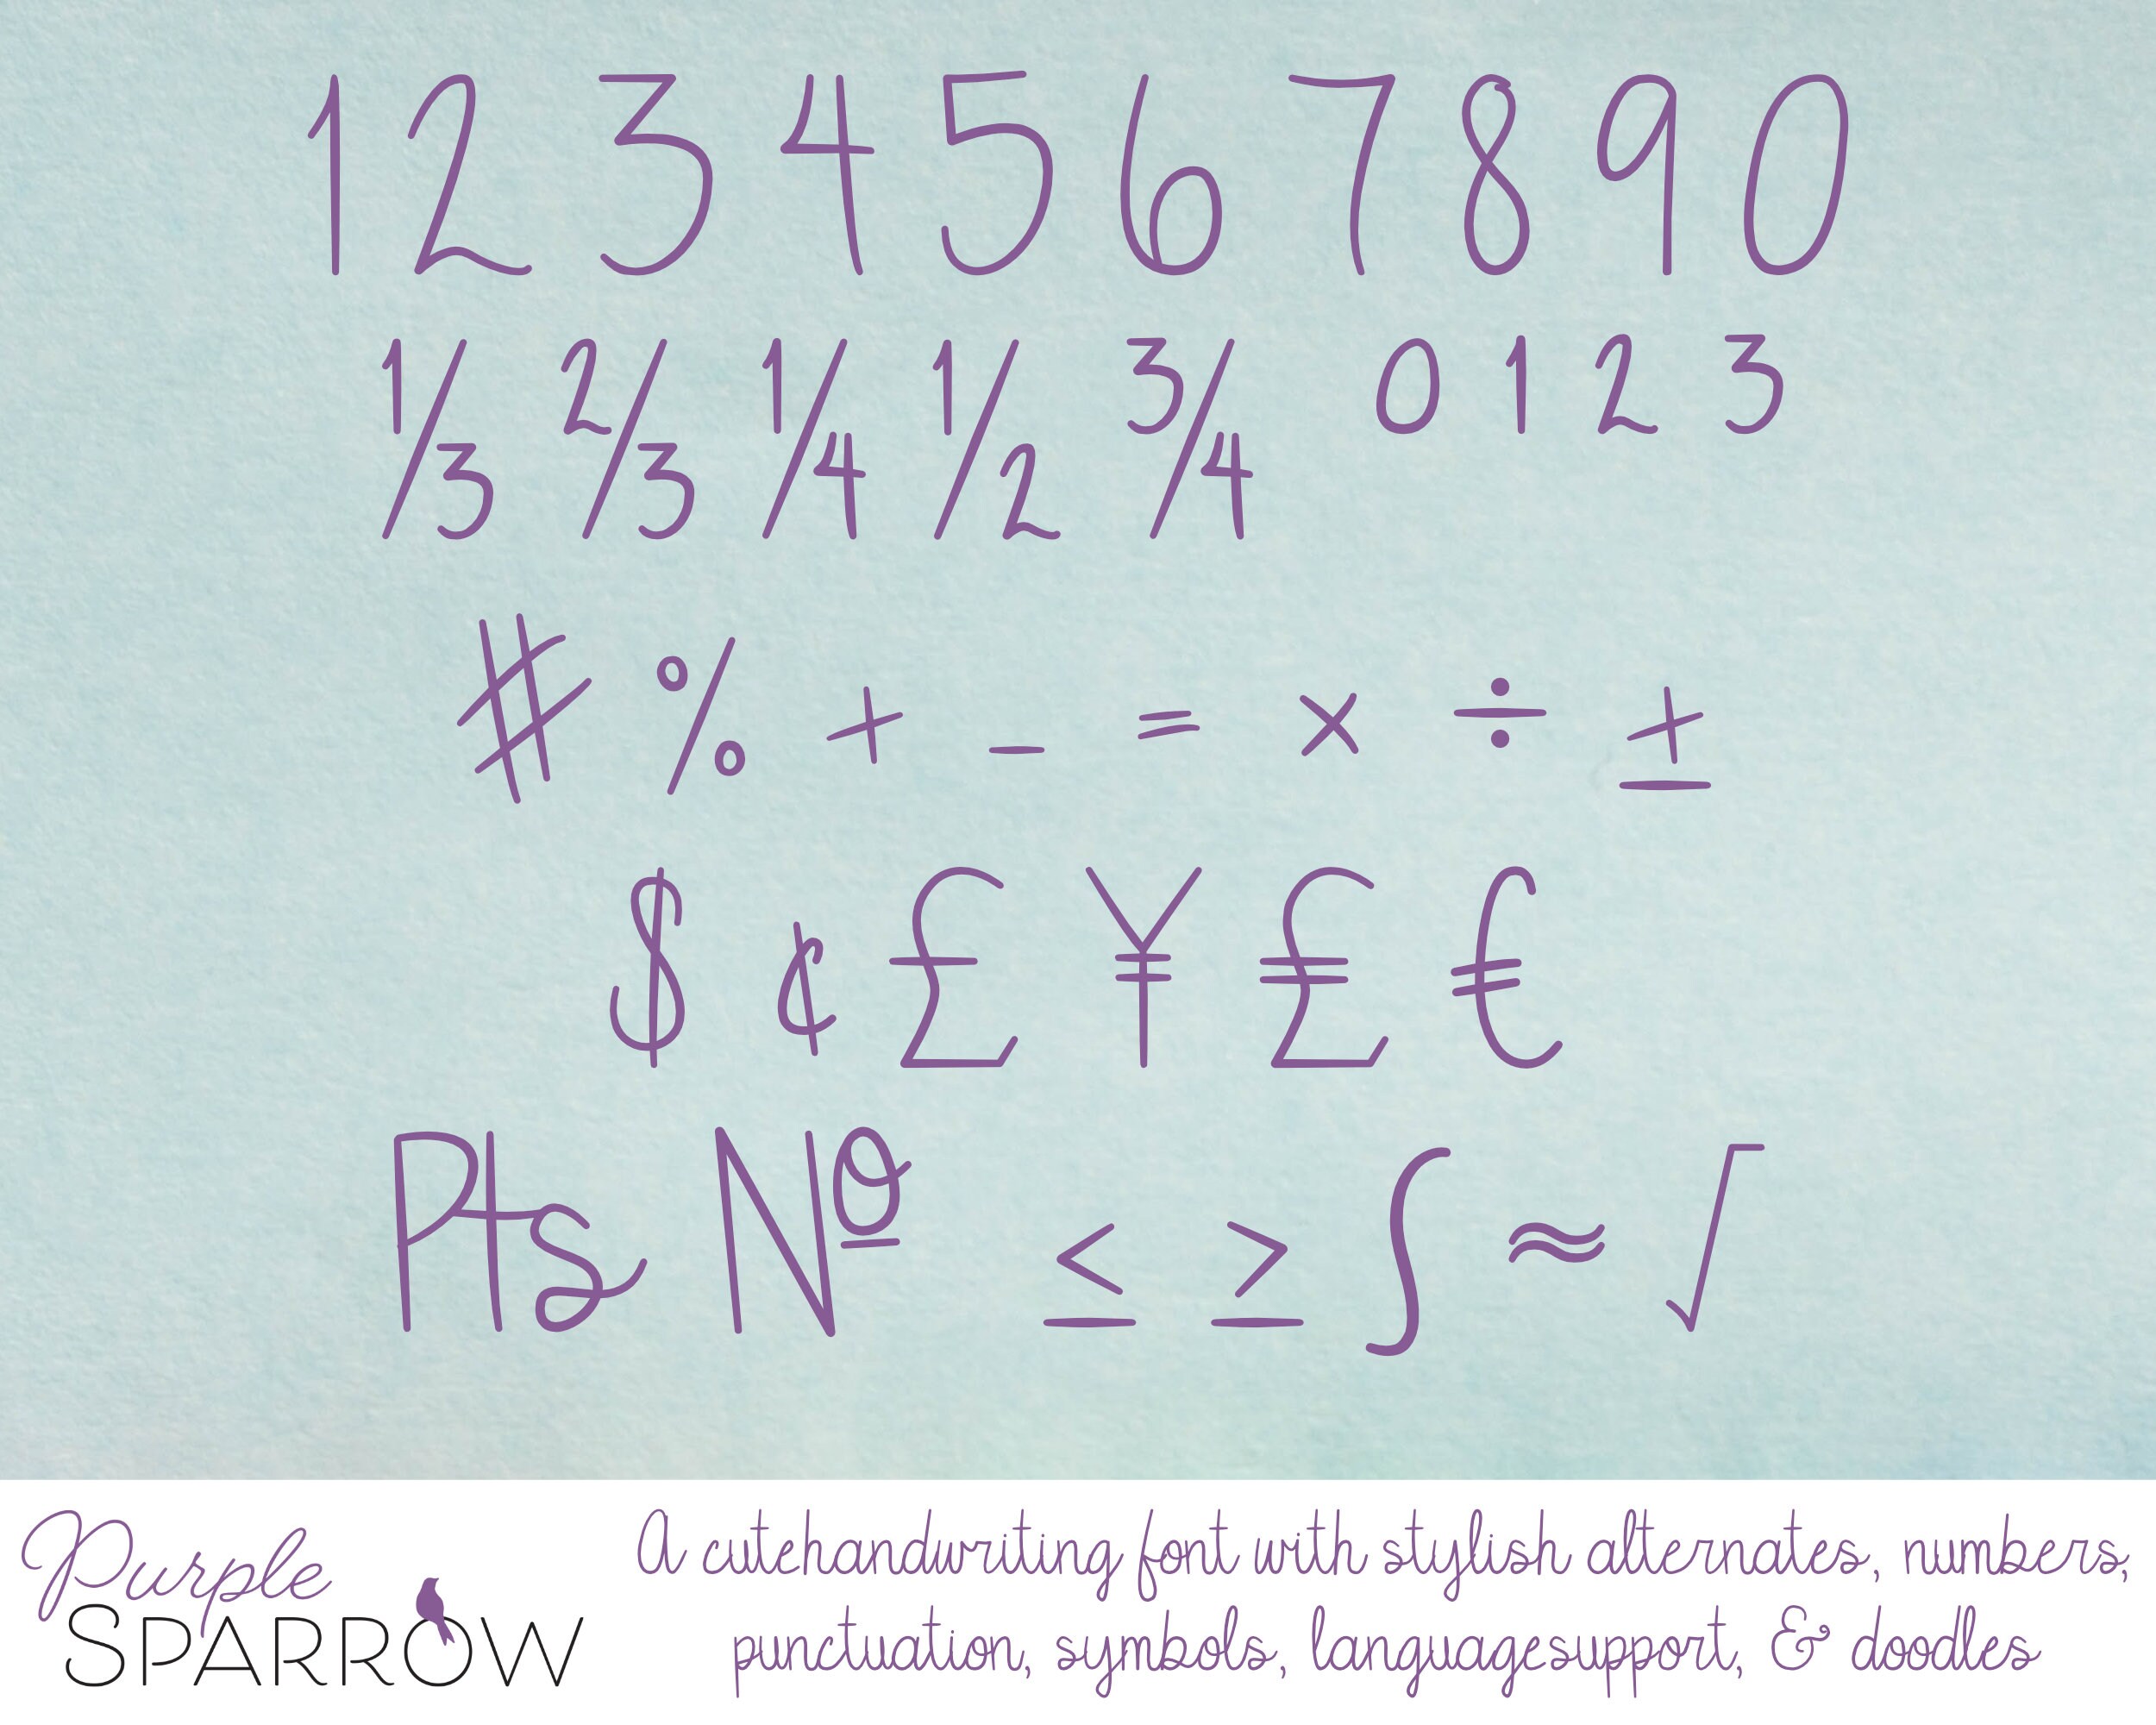 1 2 3 4 5 6 7 8 9 0
⅓ ⅔ ¼ ½ ¾ 0 1 2 3
# % + _ = × ÷ ±
$ ¢ £ ¥ ₤ €
Pts Nº ≤ ≥ ∫ ≈ √
Purple
SPARROW
A cutehandwriting font with stylish alternates, numbers,
punctuation, symbols, languagesupport, & doodles